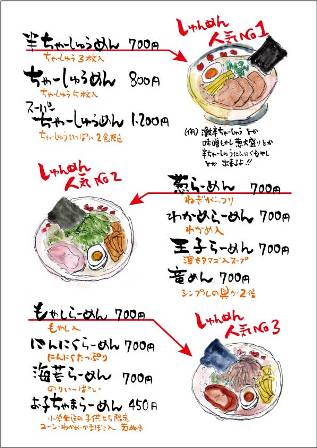 半ちゃーしゅうめん 700円
ちゃーしゅう3枚入
ちゃーしゅうめん 800円
ちゃーしゅう5枚入
スーパー
ちゃーしゅうめん 1.200円
ちゃーしゅういっぱい
しゅんめん
人気No1
しゅんめん
人気No2
葱らーめん 700円
ねぎがっつり
わかめらーめん 700円
わかめ入
玉子らーめん 700円
スープ
竜めん 700円
シンプルの具が2倍
もやしらーめん 700円
もやし入
にんにくらーめん 700円
にんにくたっぷり
海苔らーめん 700円
のりいっぱーい
お子ちゃまらーめん 450円
コーン・わかめ
しゅんめん
人気No3